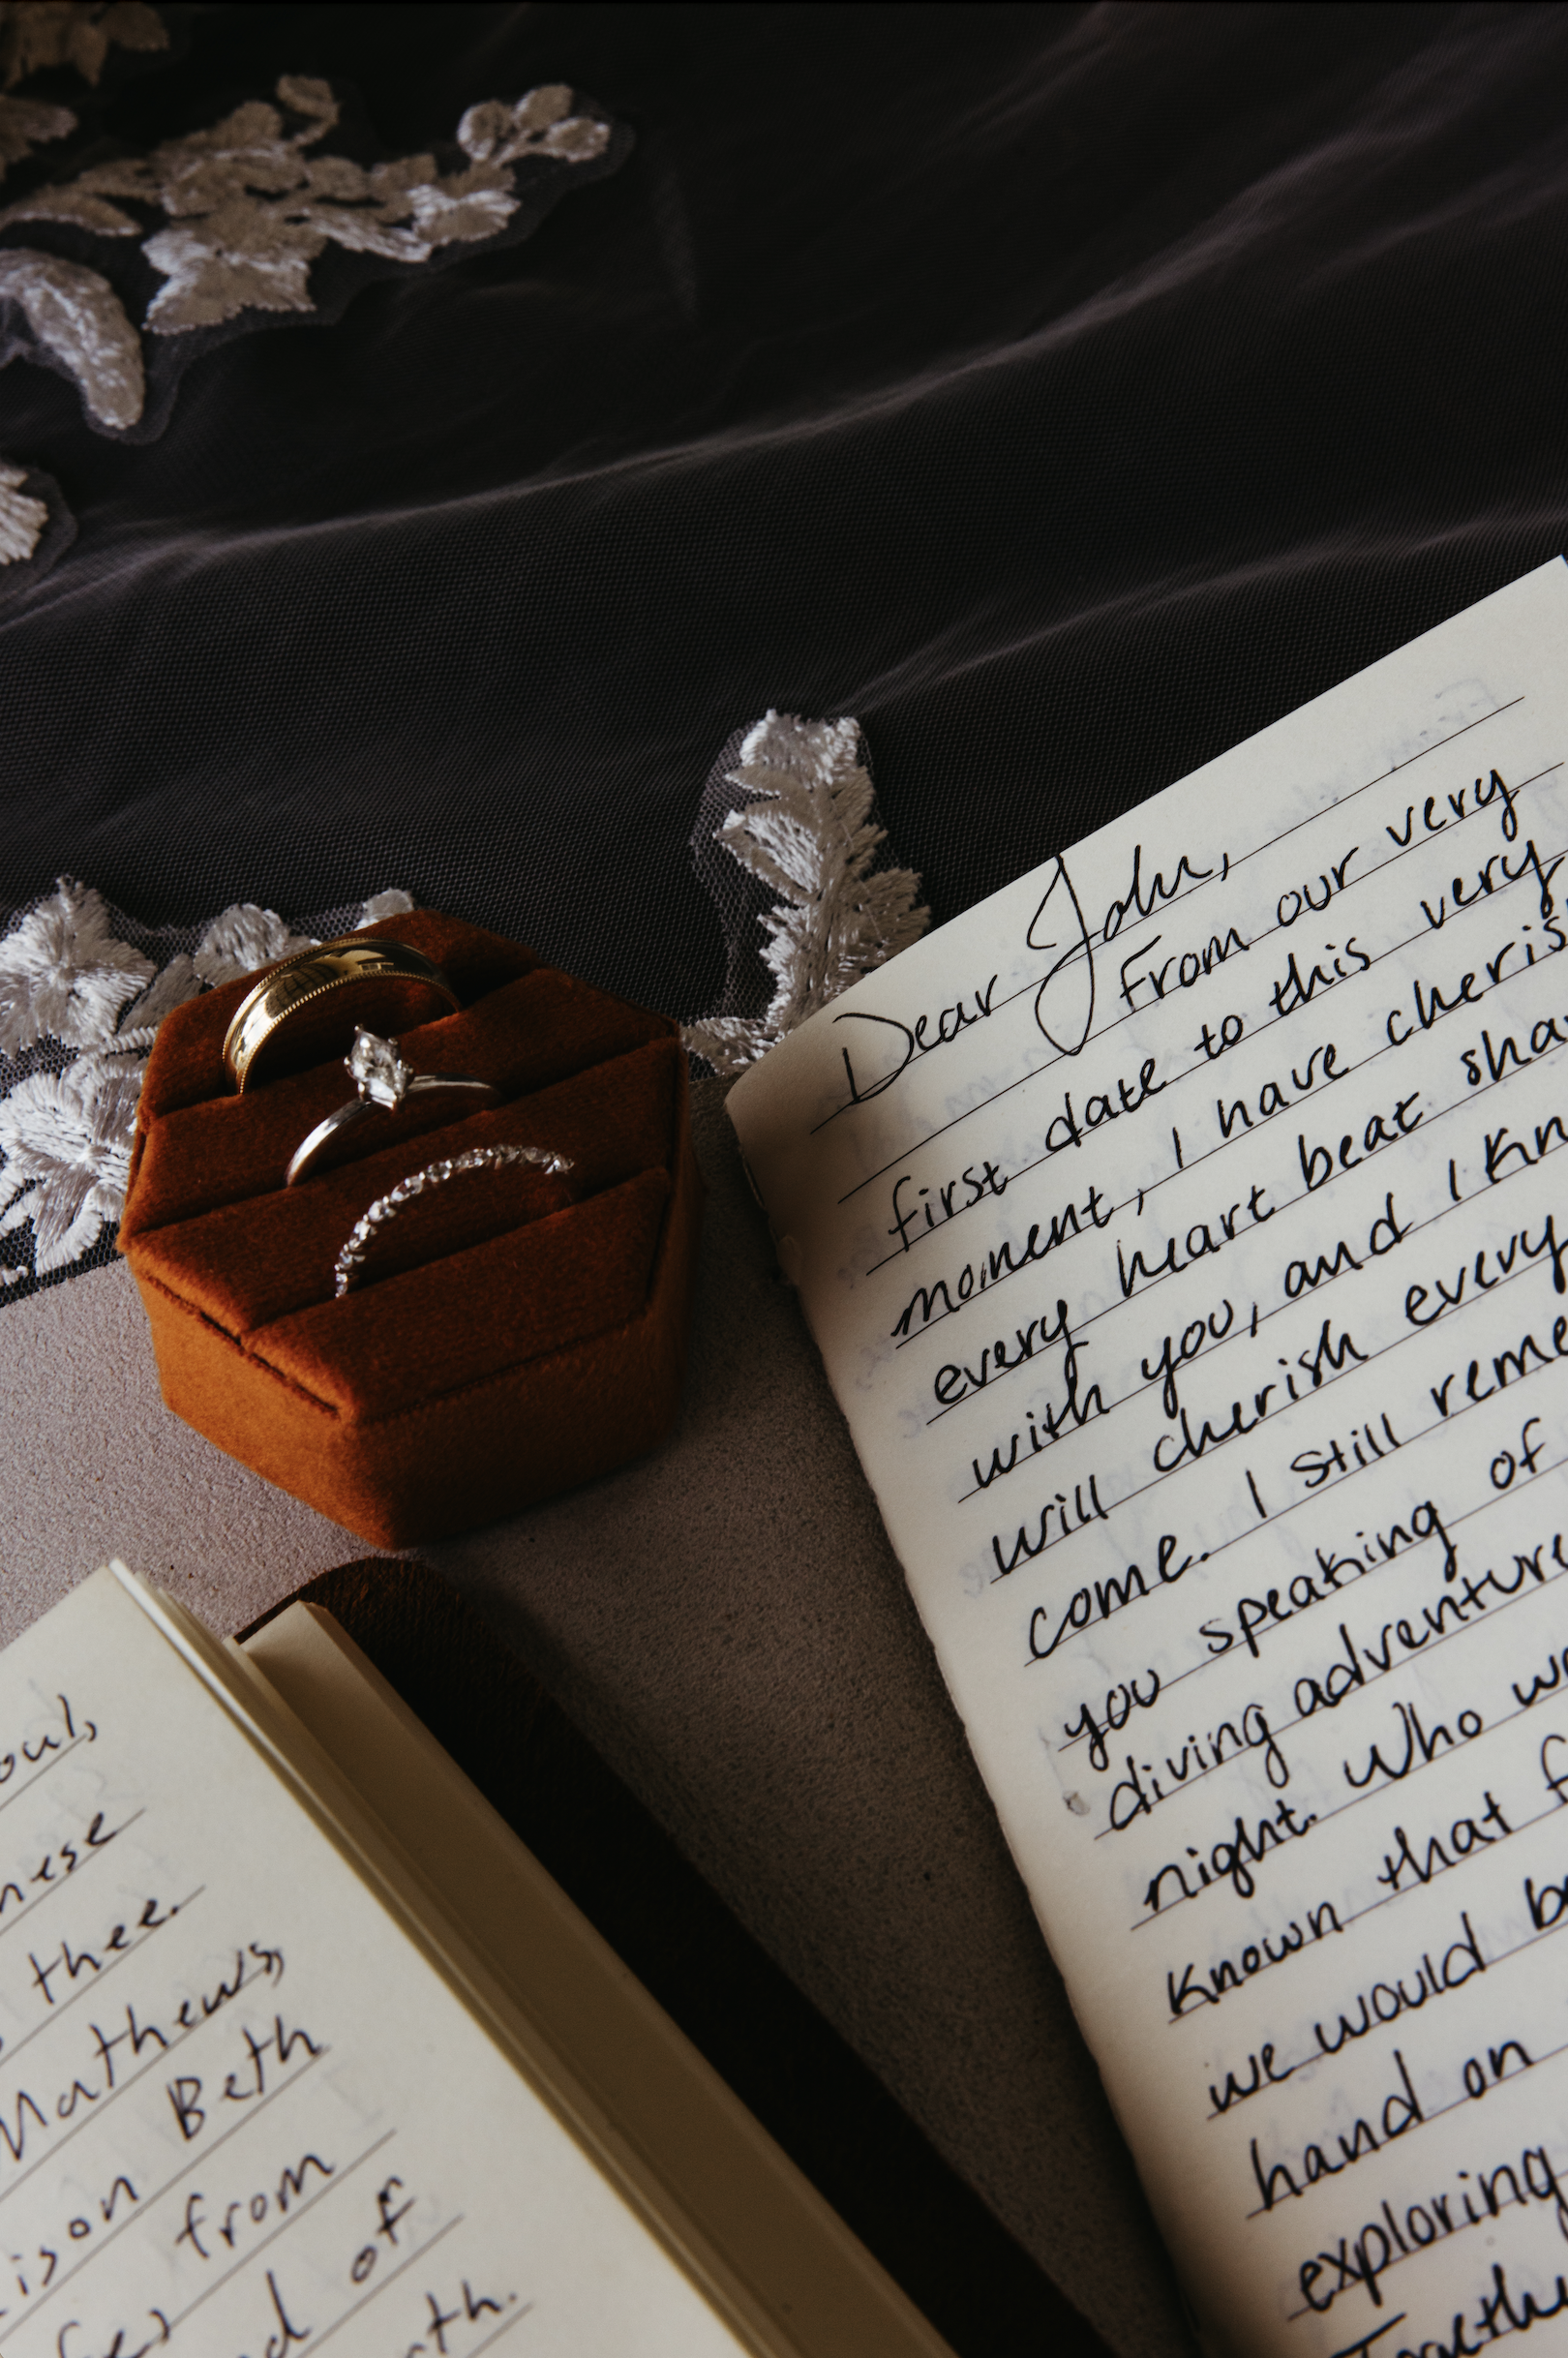 Dear John,
From our very
first date to this very
moment, I have cheris
every heart beat sha
with you, and I kn
will cherish every
come. I still reme
you speaking of
diving adventure
night. Who wo
known that f
we would be
hand on
exploring
Togethe
oul,
nese
thee.
Mathews,
ison Beth
from
d of
rth.